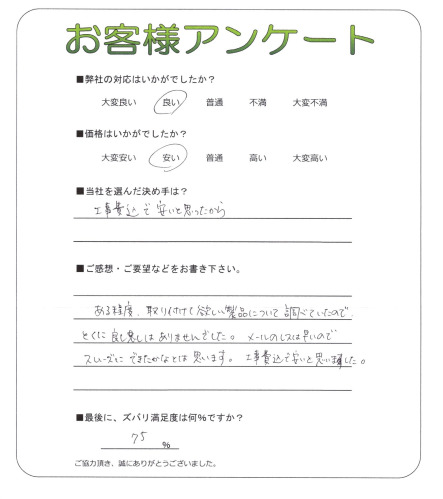 お客様アンケート
■弊社の対応はいかがでしたか？
大変良い 良い 普通 不満 大変不満
■価格はいかがでしたか？
大変安い 安い 普通 高い 大変高い
■当社を選んだ決め手は？
工事費込で安いと思ったから
■ご感想・ご要望などをお書き下さい。
ある程度、取り付けて欲しい製品について調べていたので、
とくに良し悪しはありませんでした。メールのレスは早いので
スムーズにできたかなとは思います。工事費込で安いと思いました。
■最後に、ズバリ満足度は何％ですか？
75 ％
ご協力頂き、誠にありがとうございました。